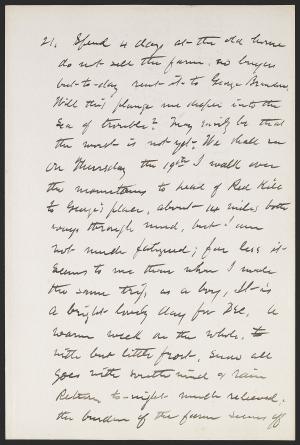 21. Spend 4 days at the old home
do not sell the farm. no buyers
but to-day rent it to George
Will this plunge me deeper into the
Sea of trouble? May easily be that
the worst is not yet. We shall see
On Thursday the 19th I walk over
the mountains to head of Red Kill
to George's place, about 14 miles both
ways, through mud, but I am
not much fatigued; far less it
seems to me than when I made
the same trip, as a boy. It is
a bright lovely day for Dec. A
warm week on the whole, to
with but little frost, snow all
goes with south wind & rain
Return to-night much relieved,
the burden of the farm seems off